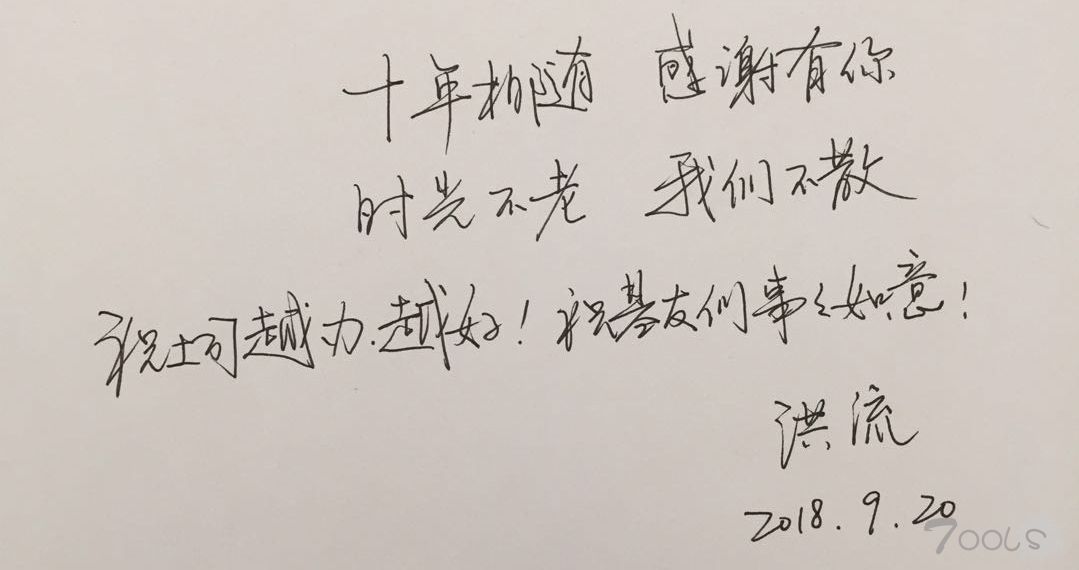 十年相随 感谢有你
时光不老 我们不散
祝土司越办越好！祝基友们事事如意！
洪流
2018.9.20
7OOLS